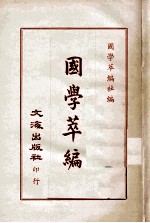 國學萃編社編
國學萃編
文海出版社印行